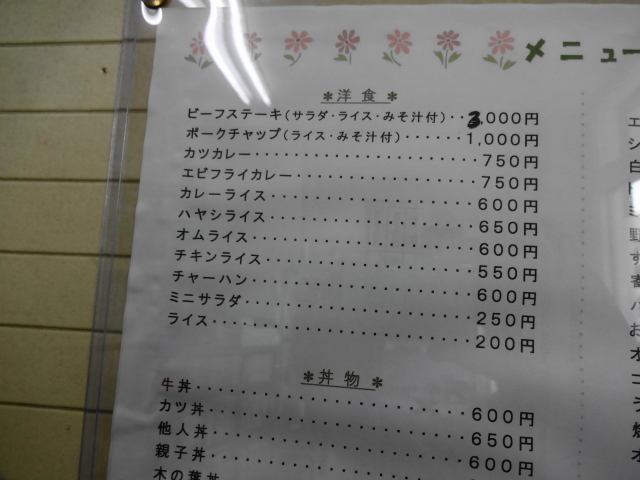 メニュー
＊洋食＊
ビーフステーキ(サラダ・ライス・みそ汁付)・・3,000円
ポークチャップ(ライス・みそ汁付)・・・・・・1,000円
カツカレー・・・・・・・・・・・・・・・・・・750円
エビフライカレー・・・・・・・・・・・・・・・750円
カレーライス・・・・・・・・・・・・・・・・・600円
ハヤシライス・・・・・・・・・・・・・・・・・650円
オムライス・・・・・・・・・・・・・・・・・・600円
チキンライス・・・・・・・・・・・・・・・・・550円
チャーハン・・・・・・・・・・・・・・・・・・600円
ミニサラダ・・・・・・・・・・・・・・・・・・250円
ライス・・・・・・・・・・・・・・・・・・・・200円
＊丼物＊
牛丼・・・・・・・・・・・・・・・・・・・・・600円
カツ丼・・・・・・・・・・・・・・・・・・・・650円
他人丼・・・・・・・・・・・・・・・・・・・・600円
親子丼・・・・・・・・・・・・・・・・・・・・
木の葉丼